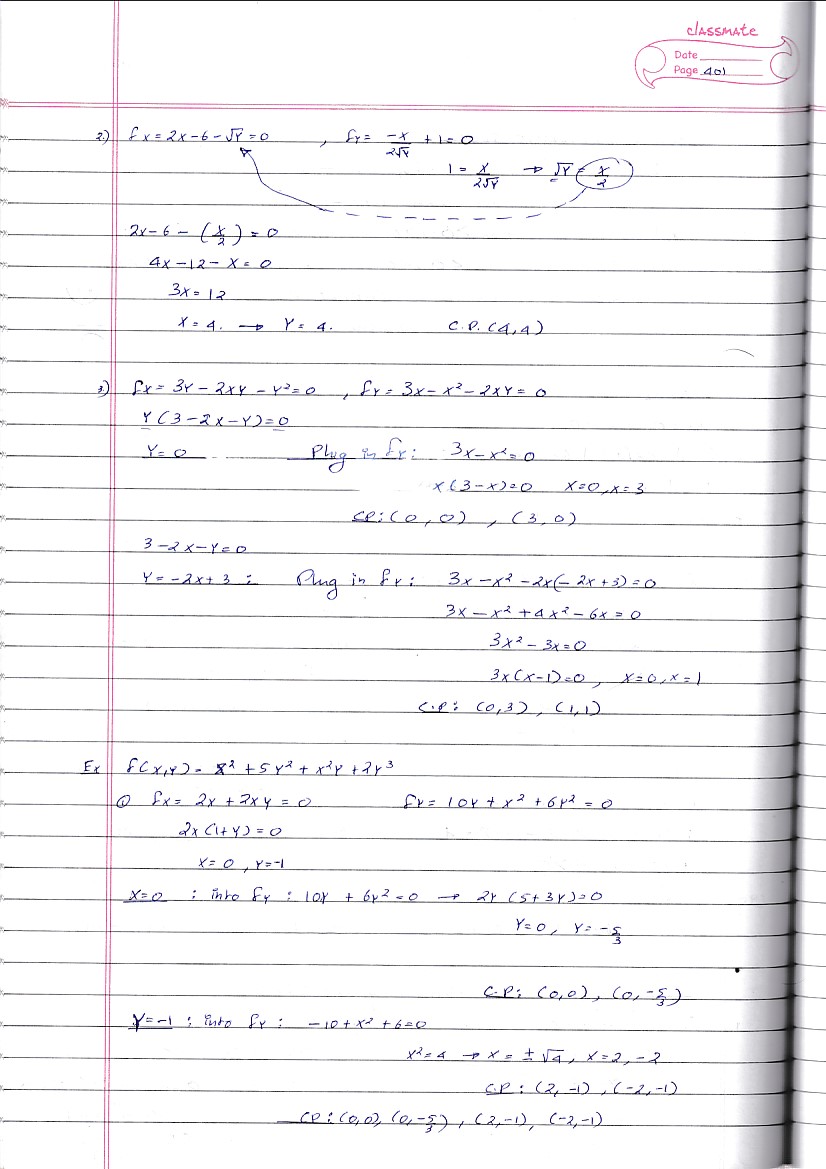 classmate
Date
Page 401
2.) fx = 2x - 6 - √y = 0 , fy = -x/2√y + 1 = 0
1 = x/2√y → √y = x/2
2x - 6 - (x/2) = 0
4x - 12 - x = 0
3x = 12
x = 4. → y = 4. C.P. (4,4)
3) fx = 3y - 2xy - y² = 0 , fy = 3x - x² - 2xy = 0
y(3 - 2x - y) = 0
y = 0 Plug in fy : 3x - x² = 0
x(3-x) = 0 x=0, x=3
CP: (0,0) , (3,0)
3 - 2x - y = 0
y = -2x + 3 : Plug in fy : 3x - x² - 2x(-2x+3) = 0
3x - x² + 4x² - 6x = 0
3x² - 3x = 0
3x(x-1) = 0 , x=0, x=1
C.P: (0,3) , (1,1)
Ex f(x,y) = x² + 5y² + x²y + 2y³
① fx = 2x + 2xy = 0 fy = 10y + x² + 6y² = 0
2x(1+y) = 0
x = 0 , y = -1
x=0 : into fy : 10y + 6y² = 0 → 2y(5+3y) = 0
y = 0, y = -5/3
C.P: (0,0), (0,-5/3)
y = -1 : into fy : -10 + x² + 6 = 0
x² = 4 → x = ±√4, x = 2, -2
C.P : (2,-1) , (-2,-1)
CP: (0,0), (0,-5/3) , (2,-1), (-2,-1)